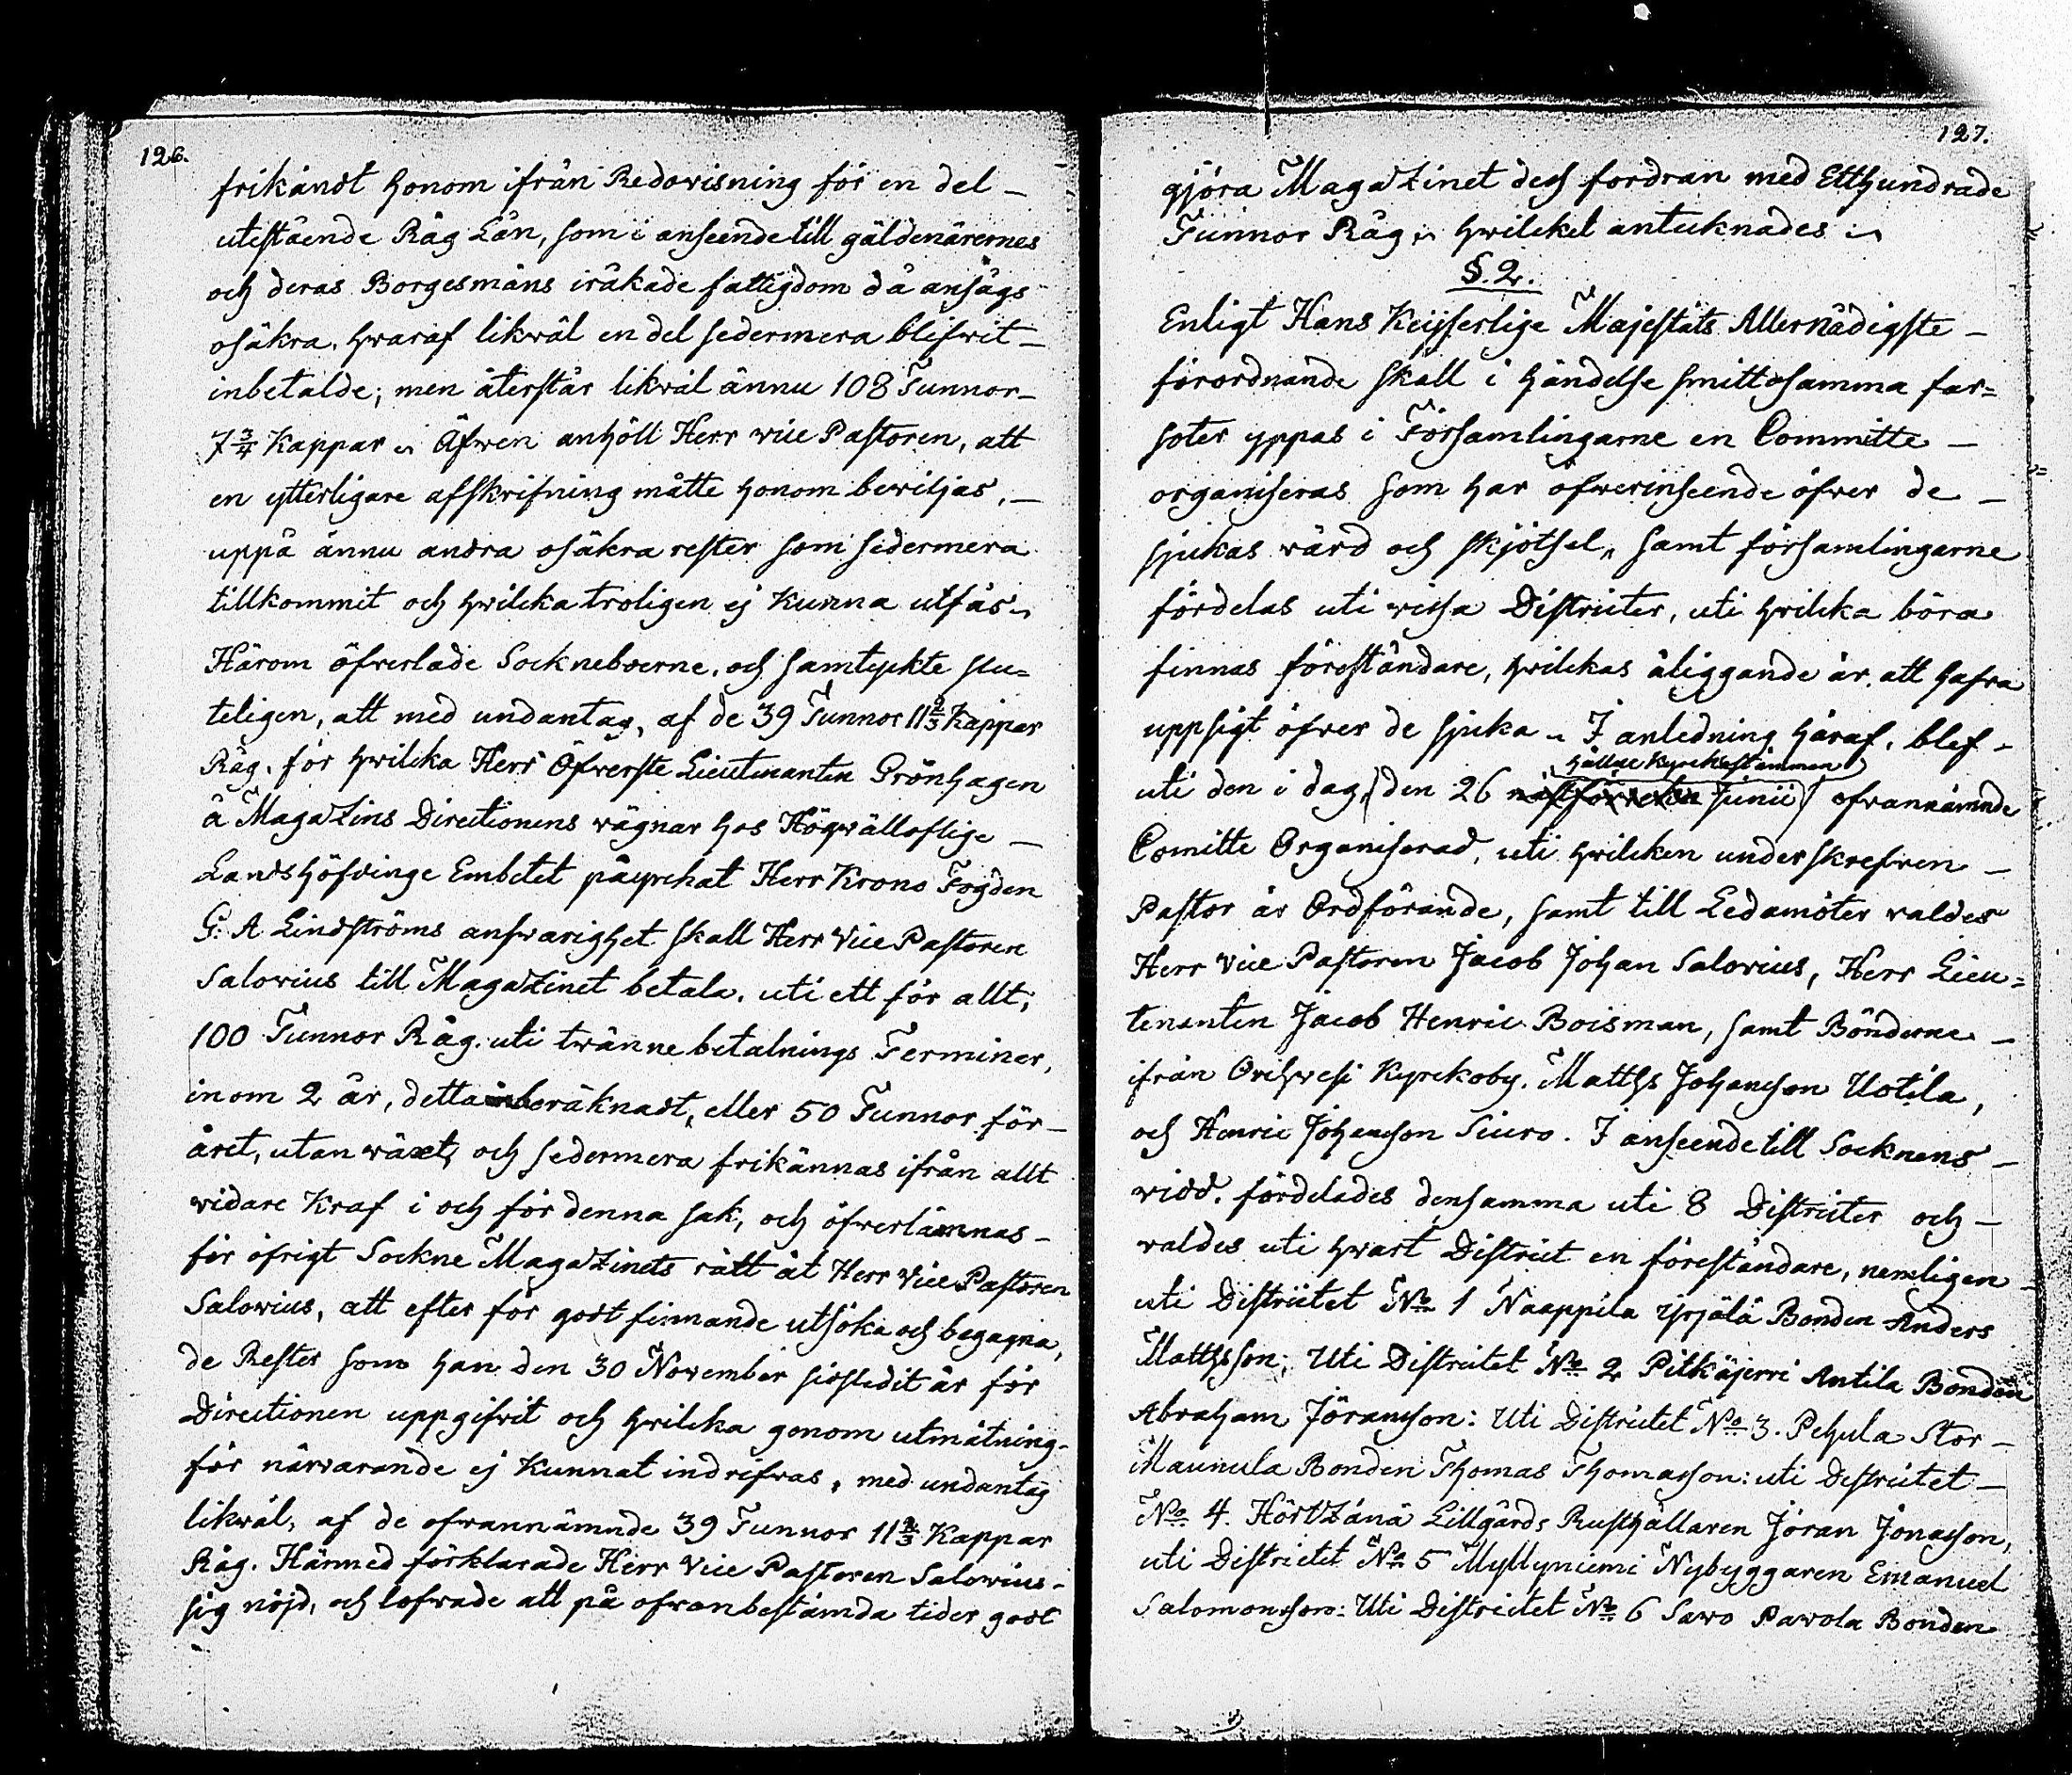 126.
frikändt honom ifrån Redovisning för en del –
utestående Råg Lån, som i anseende till gäldenärernes
och deras Borgesmäns iråkade fattigdom då ansågs
osäkra, hwaraf likwäl en del sedermera blifwit –
inbetalde; men återstår likwäl ännu 108 Tunnor –
7 3/4 Kappar. Äfwen anhöll Herr vice Pastoren, att
en ytterligare afskrifning måtte honom bewiljas, –
uppå ännu andra osäkra rester som sedermera
tillkommit och hwilcka troligen ej Kunna utfås.
Härom öfwerlade Sockneboerne, och samtyckte slu=
teligen, att med undantag, af de 39 Tunnor 11 2/3 Kappar
Råg, för hwilcka Herr Öfwerste Lieutenanten Grönhagen
å Magazins Directionens wägnar hos Högwälloflige –
Landshöfdinge Embetet påyrckat Herr Krono Fogden
G: A Lindströms answarighet skall Herr Vice Pastoren
Salovius till Magazinet betala, uti ett för allt;
100 Tunnor Råg, uti twänne betalnings Terminer,
inom 2 år, detta inberäknadt, eller 50 Tunnor för –
året, utan wäxt, och sedermera frikännas ifrån allt
widare Kraf i och för denna sak, och öfwerlämnas –
för öfrigt Sockne Magazinets rätt åt Herr Vice Pastoren
Salovius, att efter för godt finnande utsöka och begagna,
de Rester som han den 30 November sidstledit år för
Directionen uppgifwit och hwilcka genom utmätning –
för närwarande ej Kunnat indrifwas, med undantag
likwäl, af de ofwannämnde 39 Tunnor 11 2/3 Kappar
Råg. Härmed förklarade Herr Vice Pastoren Salovius –
sig nöjd, och lofwade att på ofwanbestämda tider godt
127.
gjöra Magazinet dess fordran med Etthundrade
Tunnor Råg, hwilcket antecknades
§. 2.
Enligt Hans Keijserlige Majestäts Allernådigste –
förordnande skall i händelse smittosamma far=
soter yppas i Församlingarne en Committe –
organiseras som har öfwerinseende öfwer de –
sjukas wård och skjötsel, samt församlingarne
fördelas uti wissa Districter, uti hwilcka böra
finnas föreståndare, hwilckas åliggande är att hafwa
uppsigt öfwer de sjuka. I anledning häraf, blef –
hållne Kyrckostämman
uti den i dag, den 26 Junii ofwannämnde
Comitte Organiserad, uti hwilcken underskrefwen –
Pastor är Ordförande, samt till Ledamöter waldes
Herr Vice Pastoren Jacob Johan Salovius, Herr Lieu=
tenanten Jacob Henric Boisman, samt Bönderne –
ifrån Orihwesi Kyrckoby, Matths Johansson Uotila,
och Henric Johansson Siuro. I anseende till Socknens –
widd, fördelades densamma uti 8 Districter och –
waldes uti hwart District en föreståndare, nemligen –
uti Districtet No 1 Naappila Yrjälä Bonden Anders
Matthsson; Uti Districtet No 2 Pitkäjerwi Antila Bonden
Abraham Jöransson: Uti Districtet No 3. Pehula Stor –
Maunula Bonden Thomas Thomasson: uti Districtet –
No 4. Hörtzänä Lillgårds Rusthållaren Jöran Jonasson,
uti Districtet No 5 Myllyniemi Nybyggaren Emanuel
Salomonsson: Uti Districtet No 6 Sawo Pawola Bonden